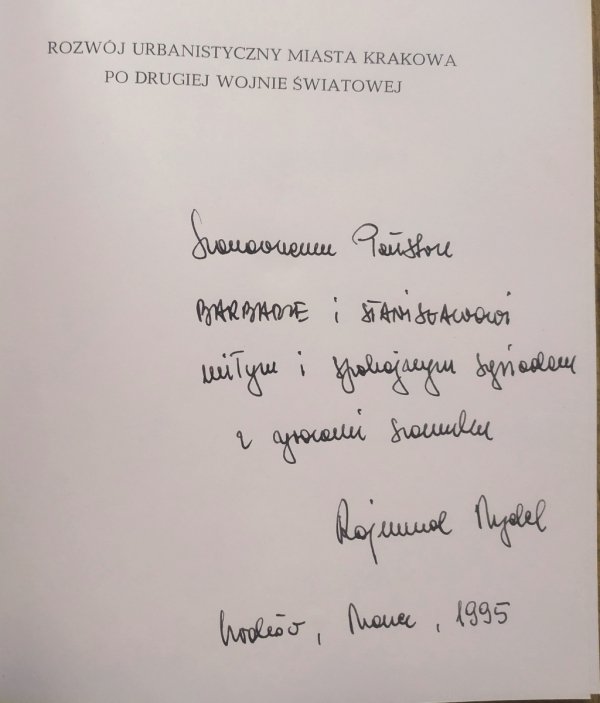 ROZWÓJ URBANISTYCZNY MIASTA KRAKOWA
PO DRUGIEJ WOJNIE ŚWIATOWEJ
Szanownemu Państwu
BARBARZE i STANISŁAWOWI
miłym i spokojnym sąsiadom
z wyrazami szacunku
Rajmund Mydel
Kraków, Marzec, 1995